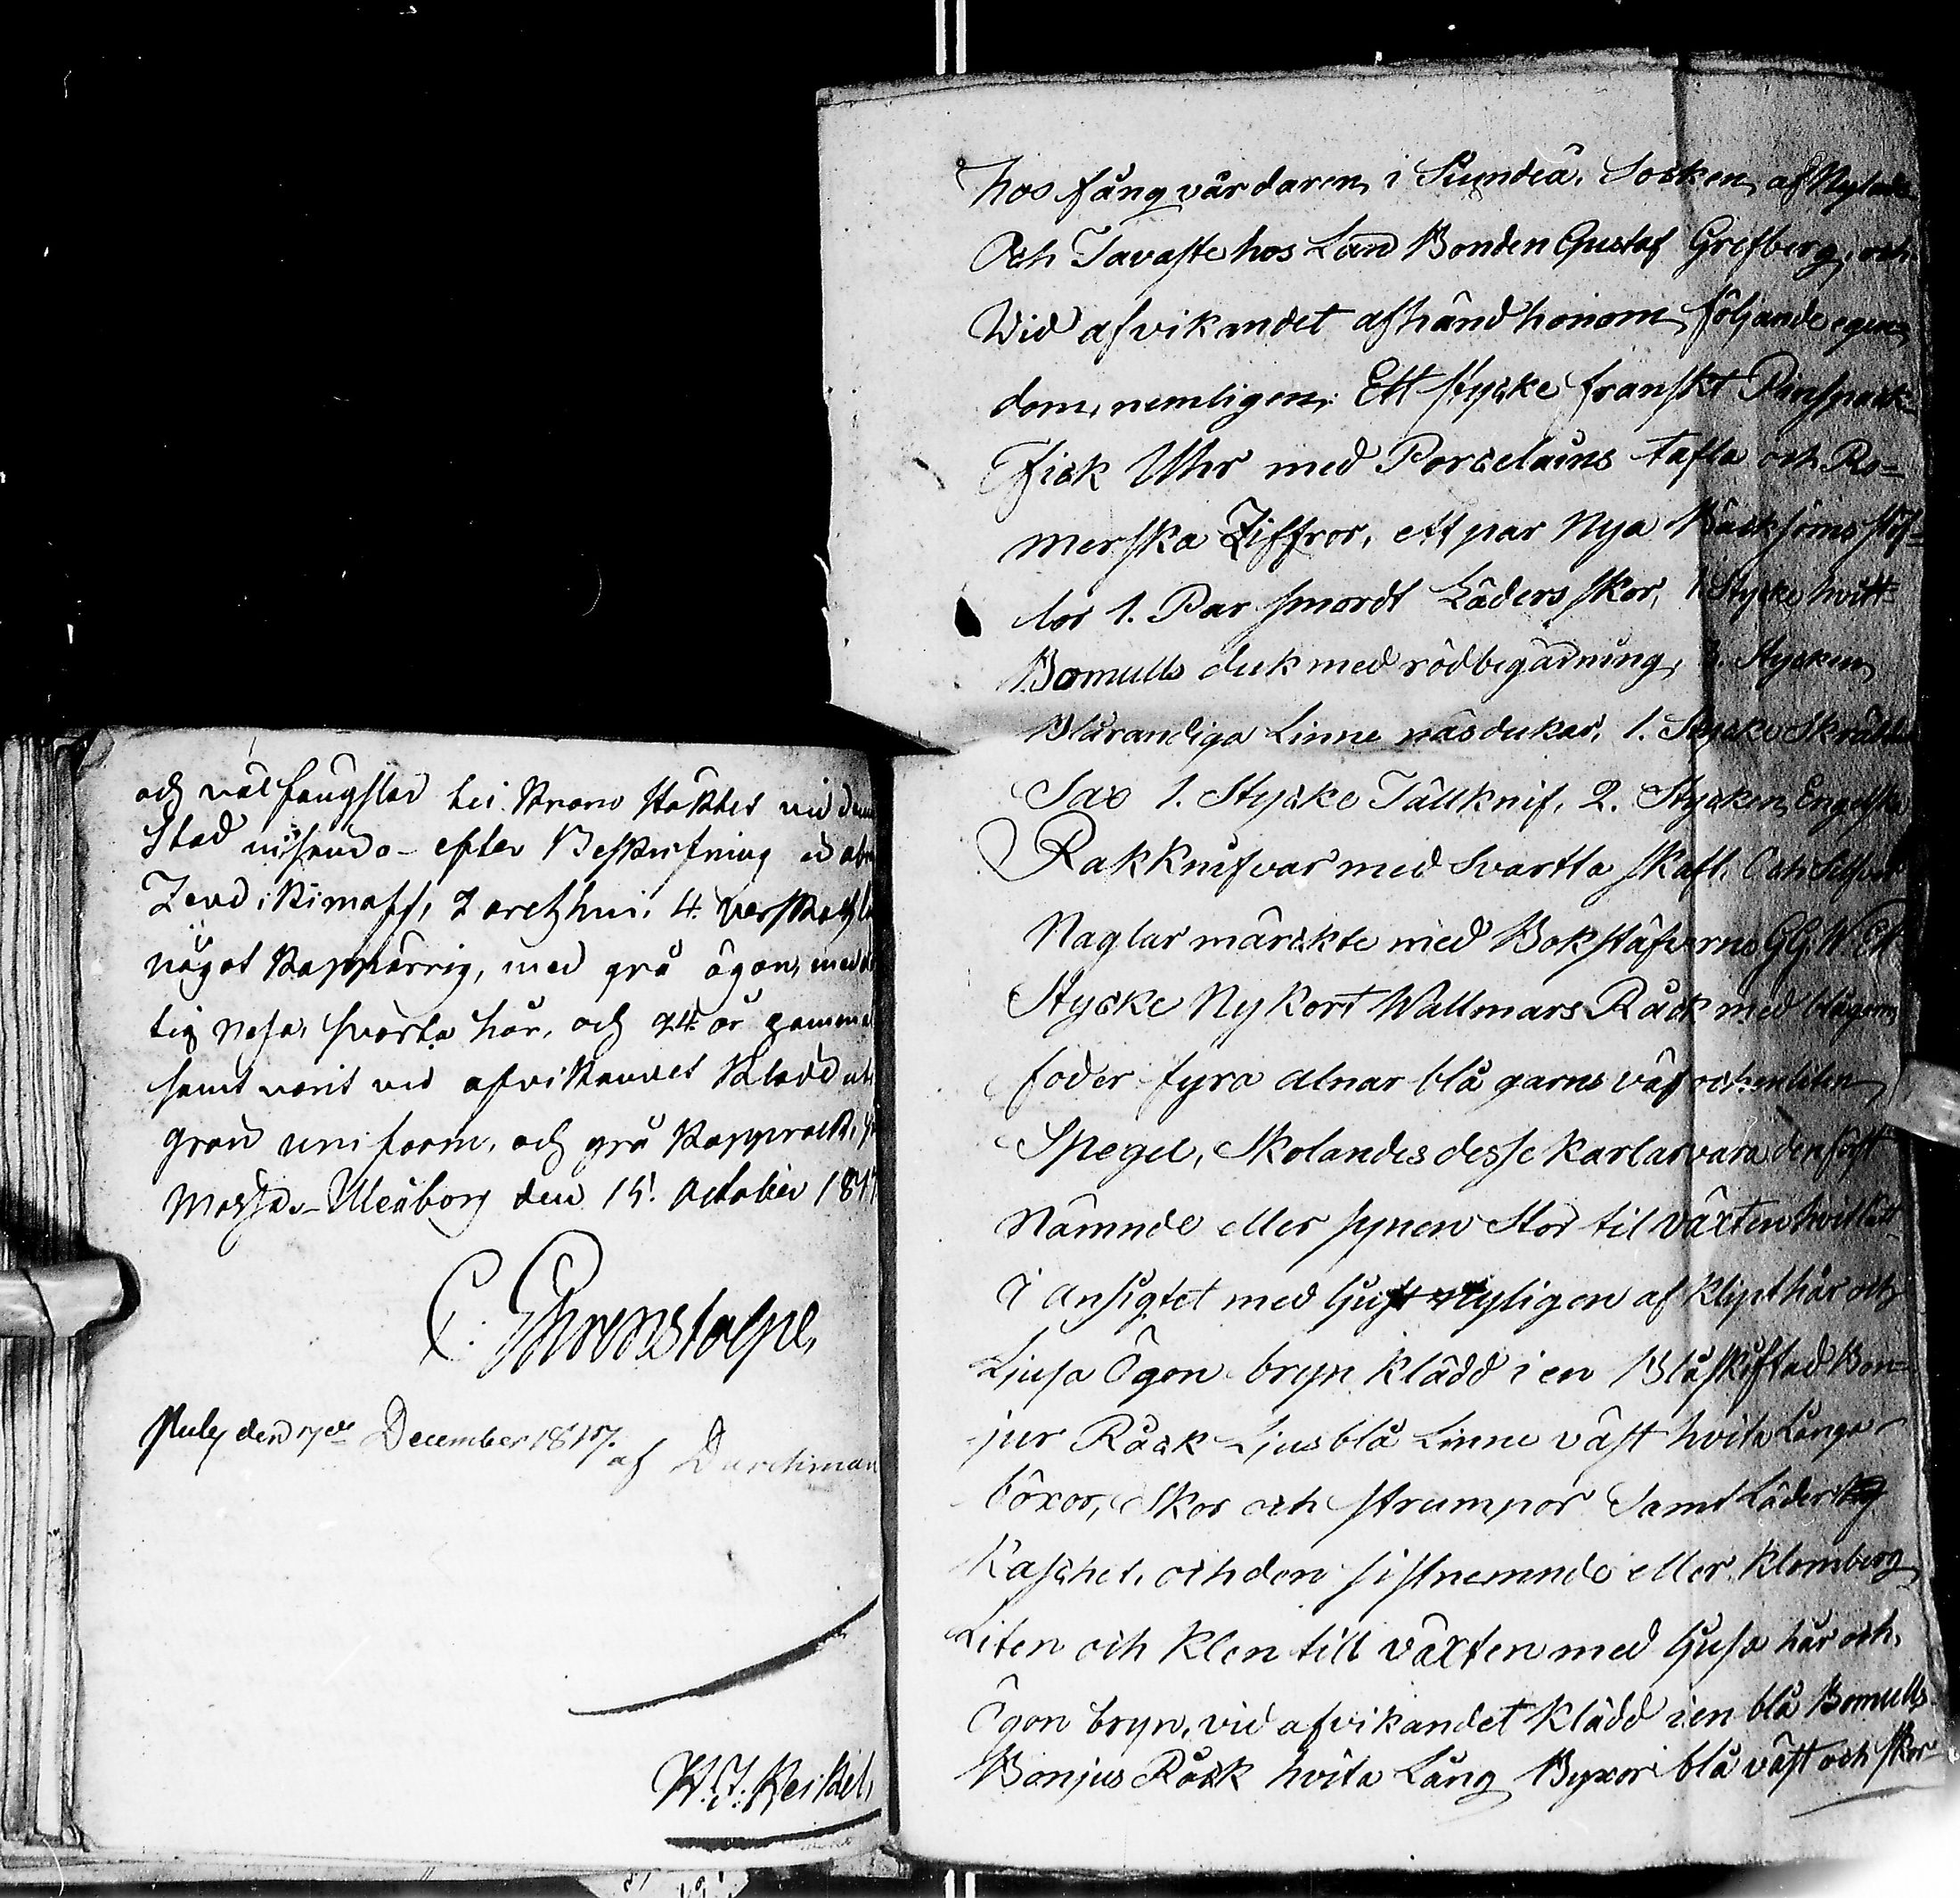 och väl fängslad till Krono Häktet vid denna
Stad insända - efter Beskrifning är ab
2 archin. 4. verskoch la
något kappärrig, med grå ögon, med
tig näsa, svarta hår, och 24 år gamma
samt varit vid afvikandet klädd uti
grön uniform, och grå Kapprock,
Mössa. Uleåborg den 15. October 1817
C. Ehrenstolpe.
den 7de December 1817.
af
W. J.
hos fångvårdaren i Siundeå Socken af Nylands
Och Tavastehus Län Bonden Gustaf Grefberg, och
Wid afvikandet afhändt honom följande egen
dom, nemligen: Ett stycke franskt
Fick Uhr med Porcelains tafla och Ro-
merska Ziffror, ett par Nya stöf-
lor 1. Par smordt Läders skor, 1 Stycke hvitt
Bomulls duk med röd begärning, 3. Stycken
Blårandiga Linne näsdukar, 1. Stycke
Sax 1. Stycke Tällknif, 2. Stycken Engelska
Rakknifvar med Svartta skaft, Och Silfver
Naglar märckte med Bokstäfverne G G: W. Ett
Stycke Ny kort Wallmars Råck med blågarns
foder fyra alnar blå garns väf och en liten
Spegel, Skolandes desse karlar vara den först
Nämnde eller synen Stor til växten hvitlätt
i ansigtet med ljust nyligen af klipt hår och
Ljusa Ögon bryn klädd i en Blåskiftad Bon-
jur Råck Ljusblå Linne väst hvita Långa
böxor, Skor och strumpor Samt Läder
Kaschet, och den sistnemnde eller Klomberg
Liten och Klen till växten med ljusa hår och
Ögon bryn, vid afvikandet klädd i en blå Bomulls
Bonjus Råck hvita Lång Byxor blå väst och skor